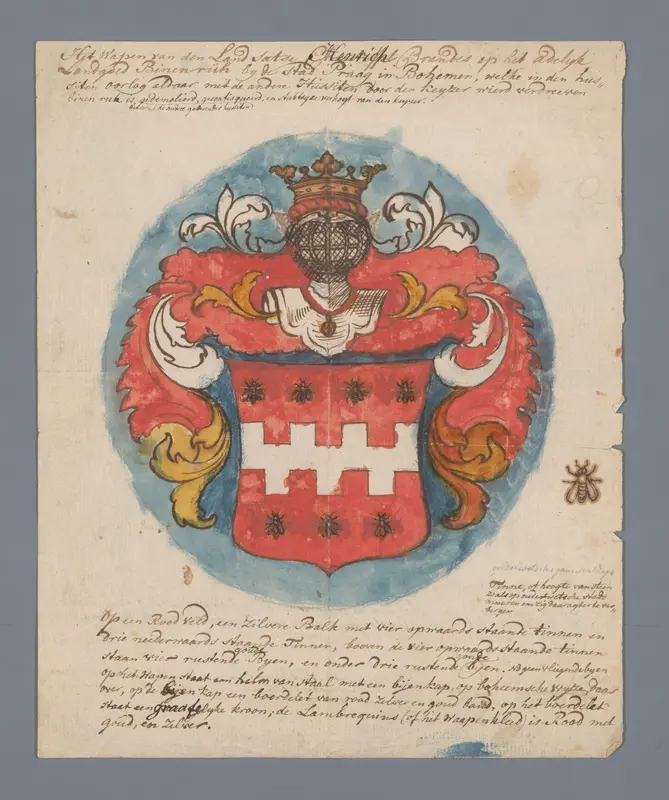 Het Wapen van den Land Satse Henrich Brandes op het adelyk
Landgoed Binenrük by de Stad Praag in Bohemen, welke in den hus„
siten oorlog aldaar met de andere Hussiten door den Keyzer wierd verdreeven
binen rük is gedemolieerd, en verkogt van den keyser.
Tinne, of hoogte van steen
op een Rood Veld, een Zilvere Balk met vier opwaards staande tinnen en
drie nederwaards staande Tinnen, booven de vier opwaards staande tinnen
staan vier rustende goude Byen, en onder drie rustende goude bijen, negeen vliegnde byen
op het Wapen staat een helm van Staal met een bijen kap, op boheemsche wyze, daar
over, op de bijen kap een boerdelet van rood zilver en goud band, op het boerdelet
staat een graaffelyke kroon; de Lambrequins (of het Waapenkleed) is Rood met
goud, en zilver.